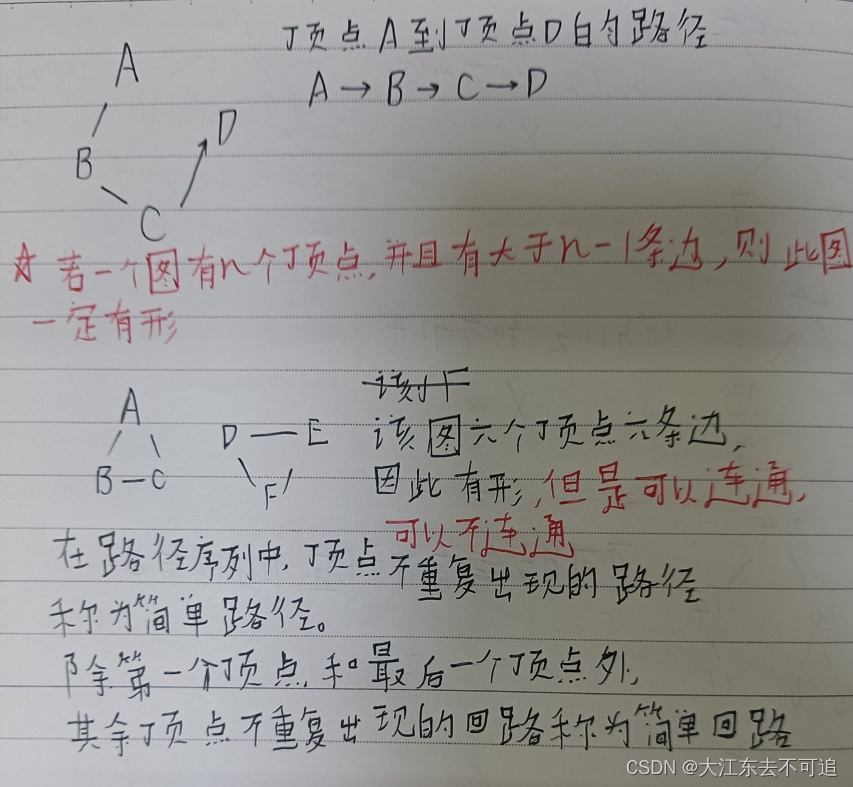 顶点A到顶点D的路径
A→B→C→D
A
D
B
C
☆若一个图有n个顶点,并且有大于n-1条边,则此图
一定有形
该对F
A
D E
该图六个顶点六条边,
B C
F
因此有形,但是可以连通,
可以不连通
在路径序列中,顶点不重复出现的路径
称为简单路径。
除第一个顶点,和最后一个顶点外,
其余顶点不重复出现的回路称为简单回路
CSDN @大江东去不可追